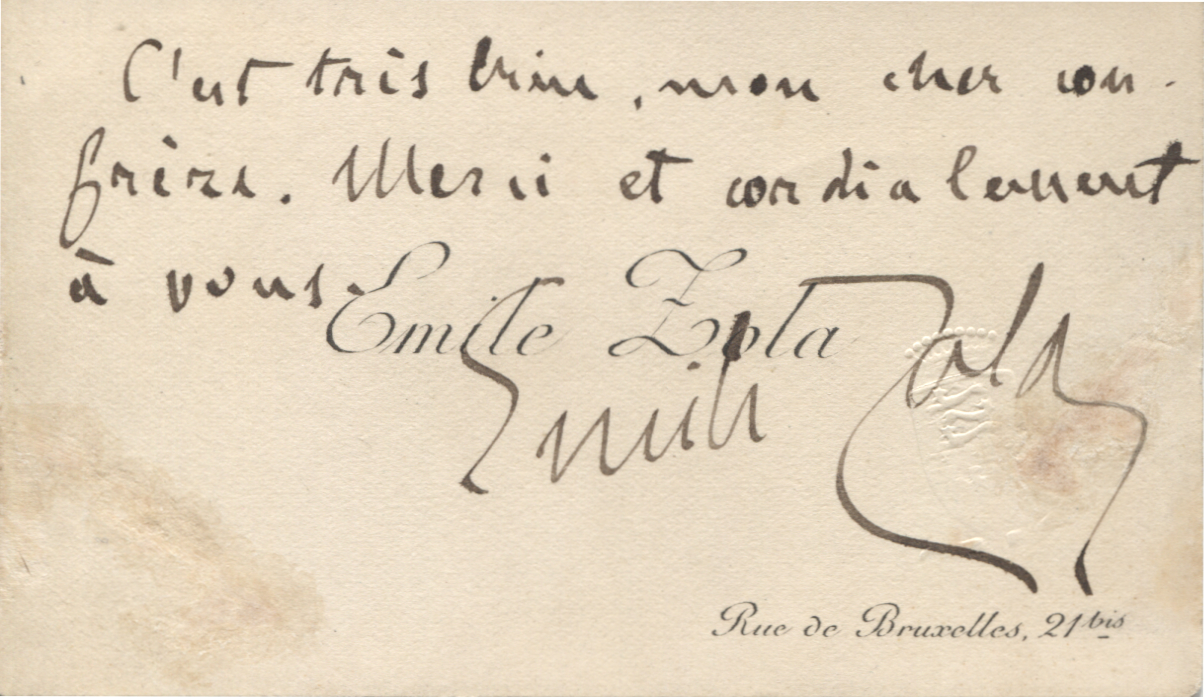 C'est très bien, mon cher con-
frère. Merci et cordialement
à vous.
Emile Zola
Emile Zola
Rue de Bruxelles, 21 bis